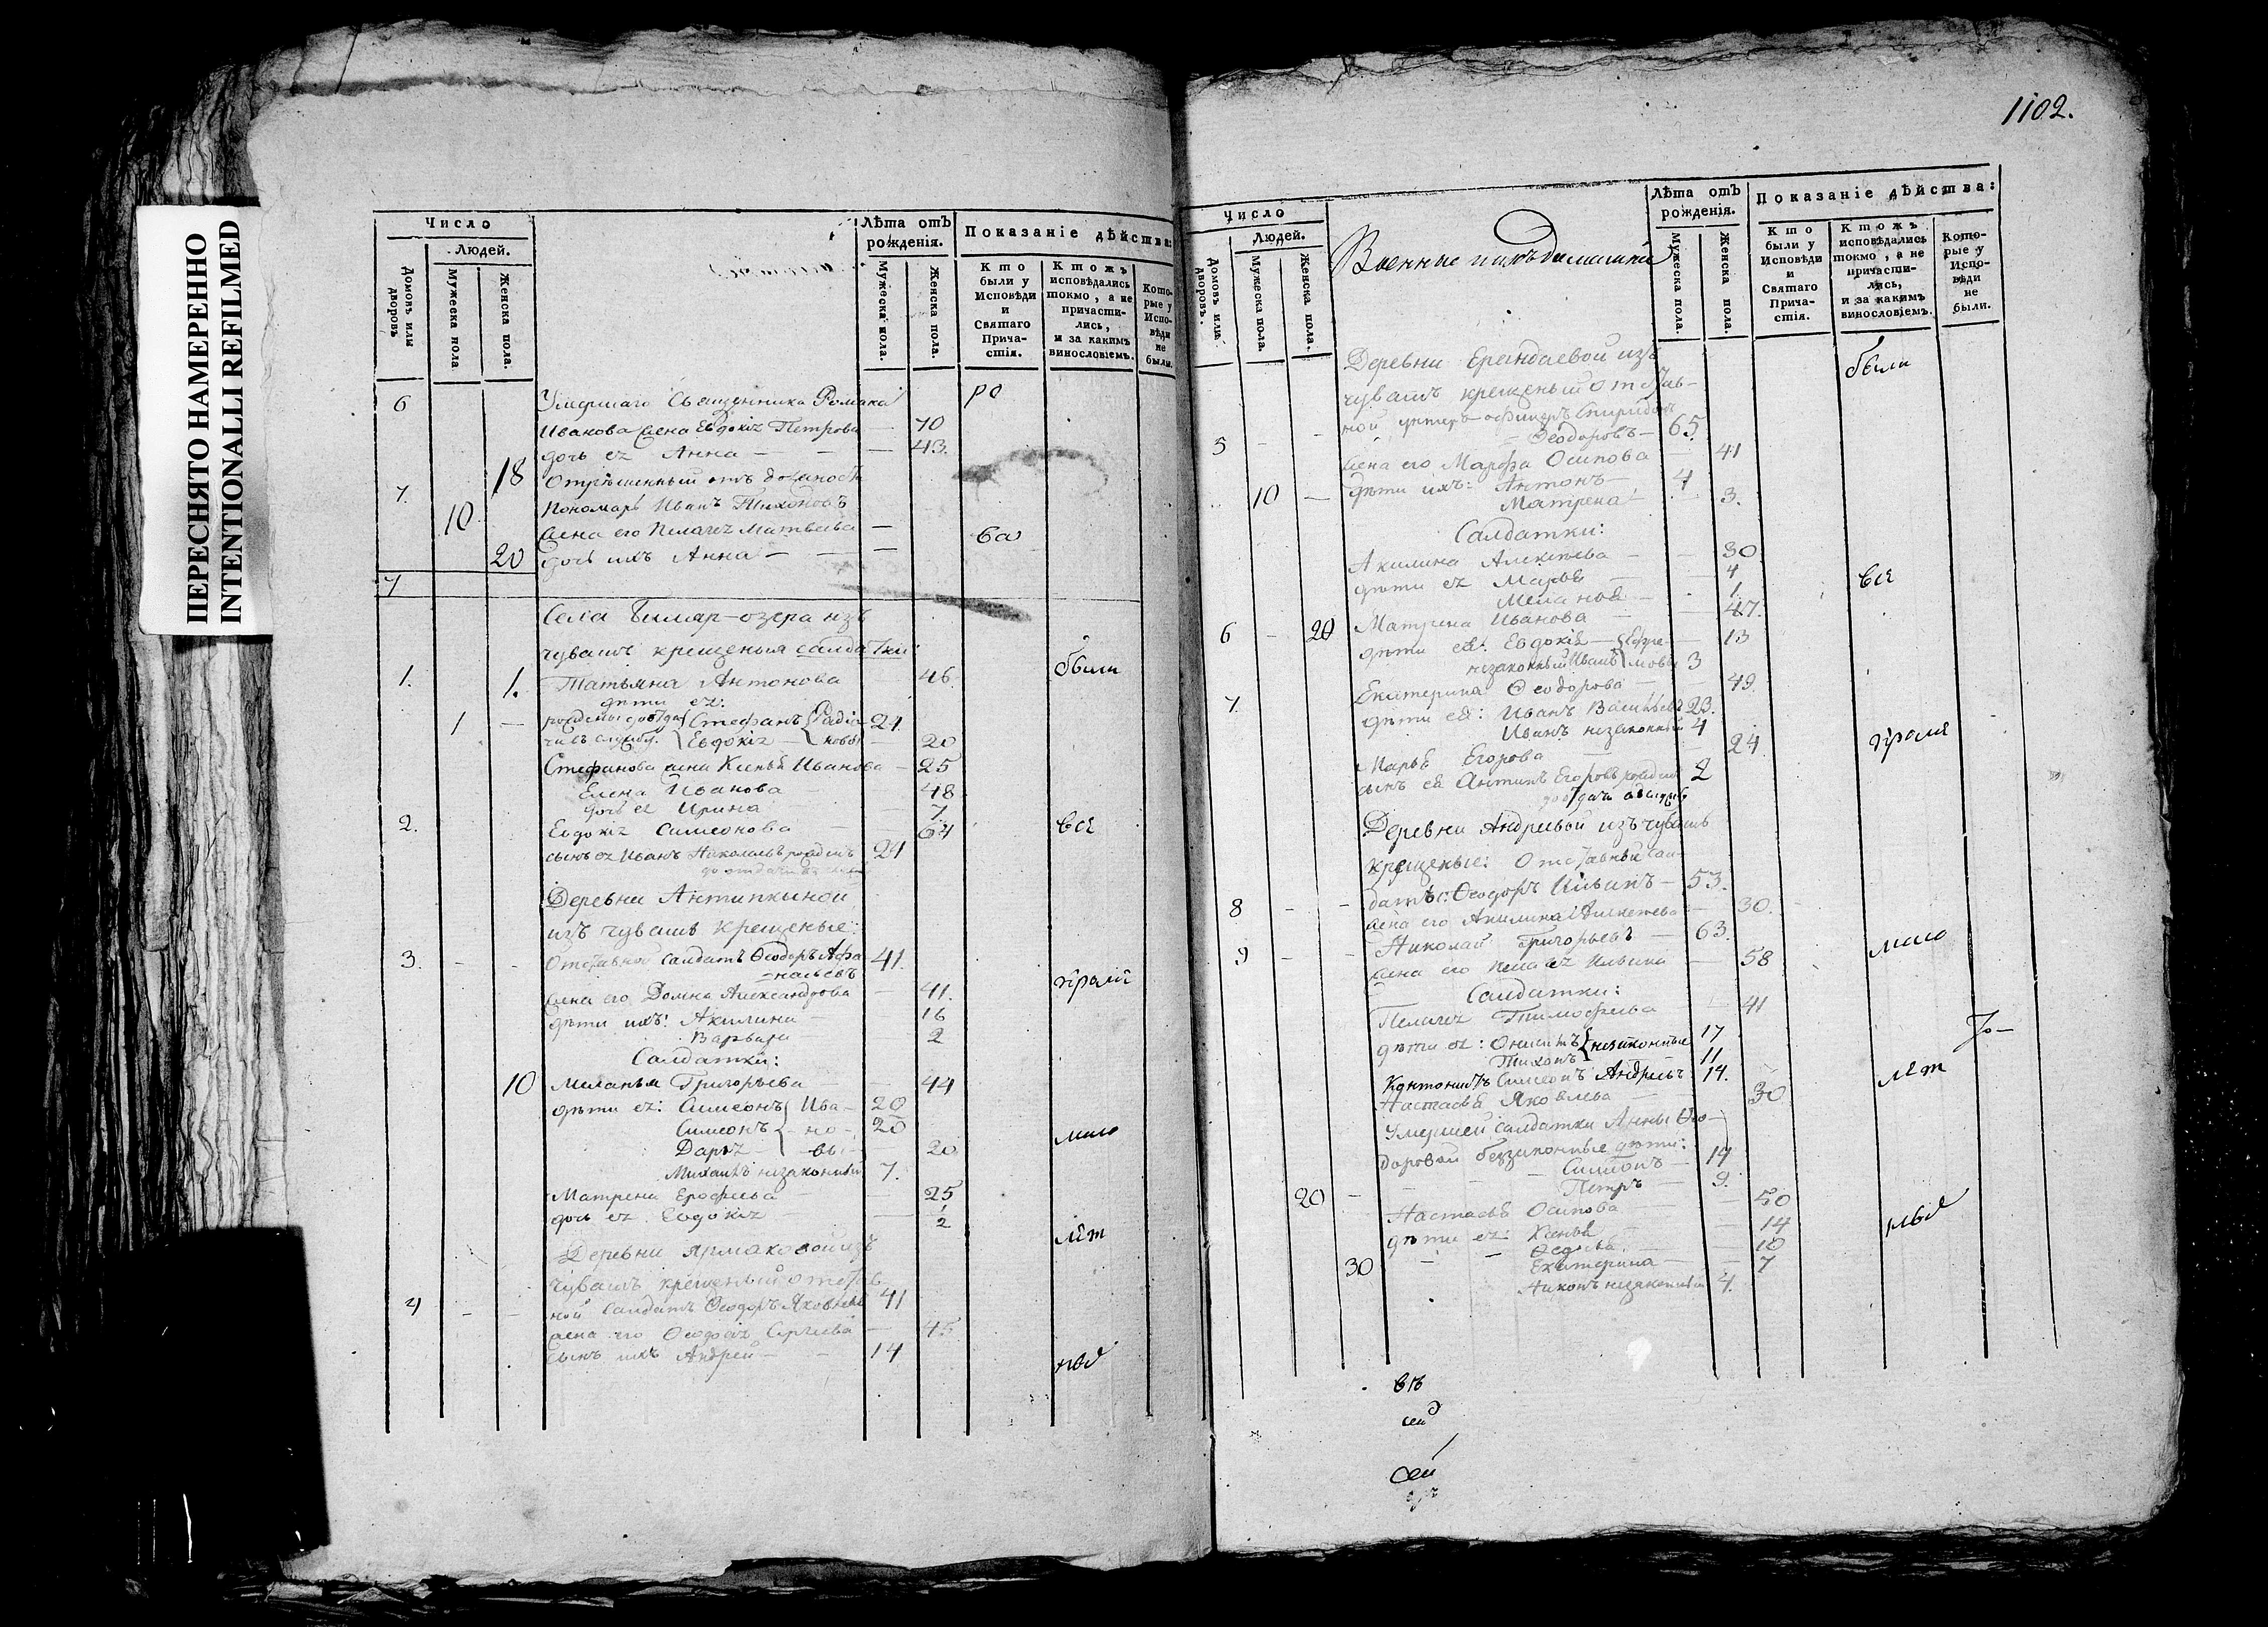 ПЕРЕСНЯТО НАМЕРЕННО
INTENTIONALLI REFILMED
Число
Людей.
Домовъ илы дворовъ
Мужеска пола
Женска пола.
Лѣта отъ рожденія.
Мужеска пола.
Женска пола.
Показаніе дѣйства:
Кто были у Исповѣди и Святаго Прича-стія.
Ктожъ исповѣдались токмо, а не причасти-лись, и за какимъ винословіемъ.
Кото-рые у Испо-вѣди не были.
6 Умершаго Священника Романа ро
Иванова жена Евдокія Петрова — 70
дочь ея Анна — — — 43.
18 Отрѣшенный отъ должности
7. Пономарь Иванъ Тихоновъ
10 жена его Пелагея Матвеева — ва
20 дочь ихъ Анна — — —
7
Села Билляр-озера изъ
чувашъ крещеныя салдатки:
1. 1. Татьяна Антонова 46. были
дѣти ея:
1 — Стефанъ Радіо- 21
Евдокія — новы — 20
Стефанова жена Ксенья Иванова — 25
Елена Иванова — 48
дочь ея Ирина 7.
2. Евдокія Симеонова — 64 всѣ
сынъ ея Иванъ Николаевъ рожденъ 24
Деревни Антипкиной
изъ чувашъ крещеные:
3. - - Отставной салдатъ Ѳеодоръ Афа- 41.
-насьевъ
жена его Домна Александрова — 41.
дѣти ихъ: Акилина — 16
Варвара 2
Салдатки:
10 Маланья Григорьева — 44
дѣти ея: Симеонъ Ива- 20
Симеонъ - но - 20
Дарья - вы - 20
Михаилъ незаконный 7.
Матрена Ерофеева — 25
дочь ея Евдокія — 1/2
Деревни Ярмаковой изъ
чувашъ крещеный отстав-
4 - - ной салдатъ Ѳеодоръ Яковлевъ 41
жена его Ѳеодосія Сергѣева — 45
сынъ ихъ Андрей — — 14
1102.
Число
Людей.
Домовъ или дворовъ.
Мужеска пола.
Женска пола.
Военные и ихъ домашніе
Лѣта отъ рожденія.
Мужеска пола.
Женска пола.
Показаніе дѣйства:
Кто были у Исповѣди и Святаго Прича-стія.
Ктожъ исповѣдались токмо, а не причасти-лись, и за какимъ винословіемъ.
Кото-рые у Испо-вѣди не были.
Деревни Ерандаевой изъ были
чувашъ крещеный отстав-
ной унтеръ-офицеръ Спиридонъ
5 - - - Ѳеодоровъ — 65.
жена его Марфа Осипова — 41
10 — дѣти ихъ: Антонъ — 4
Матрена 3.
Салдатки:
Акилина Алексѣева — — 30
дѣти ея Марья — 4 всѣ
1
6 - 20 Матрена Иванова — 47.
дѣти ея: Евдокія — Ефре- 13
незаконный Иванъ мовы 3
7. Екатерина Ѳеодорова — 49.
дѣти ея: Иванъ Васильевъ 23.
Иванъ незаконный 4
Марья Егорова 24
сынъ ея Антипъ Егоровъ рожденъ 2
Деревни Андреевой изъ чувашъ
крещеные: Отставный сал-
8 - - датъ: Ѳеодоръ Ильинъ — 53.
жена его Акилина Алексѣева — 30.
9 - - Николай Григорьевъ — 63.
жена его Пелагея Ильина — 58 мало
Салдатки:
Пелагея Тимофѣева — 41
дѣти ея: незаконные 17
Тихонъ 11
Кантонистъ Симеонъ Андреевъ 14. лѣт
Настасья Яковлева — 30
Умершей салдатки Анны Ѳео-
доровой беззаконные дѣти:
Симеонъ — 14
Петръ — 9.
20 — Настасья Осипова — 50
дѣти ея: Ксенья — 14
Ѳедосья 10
30 - - Екатерина — 7
незаконный 4.